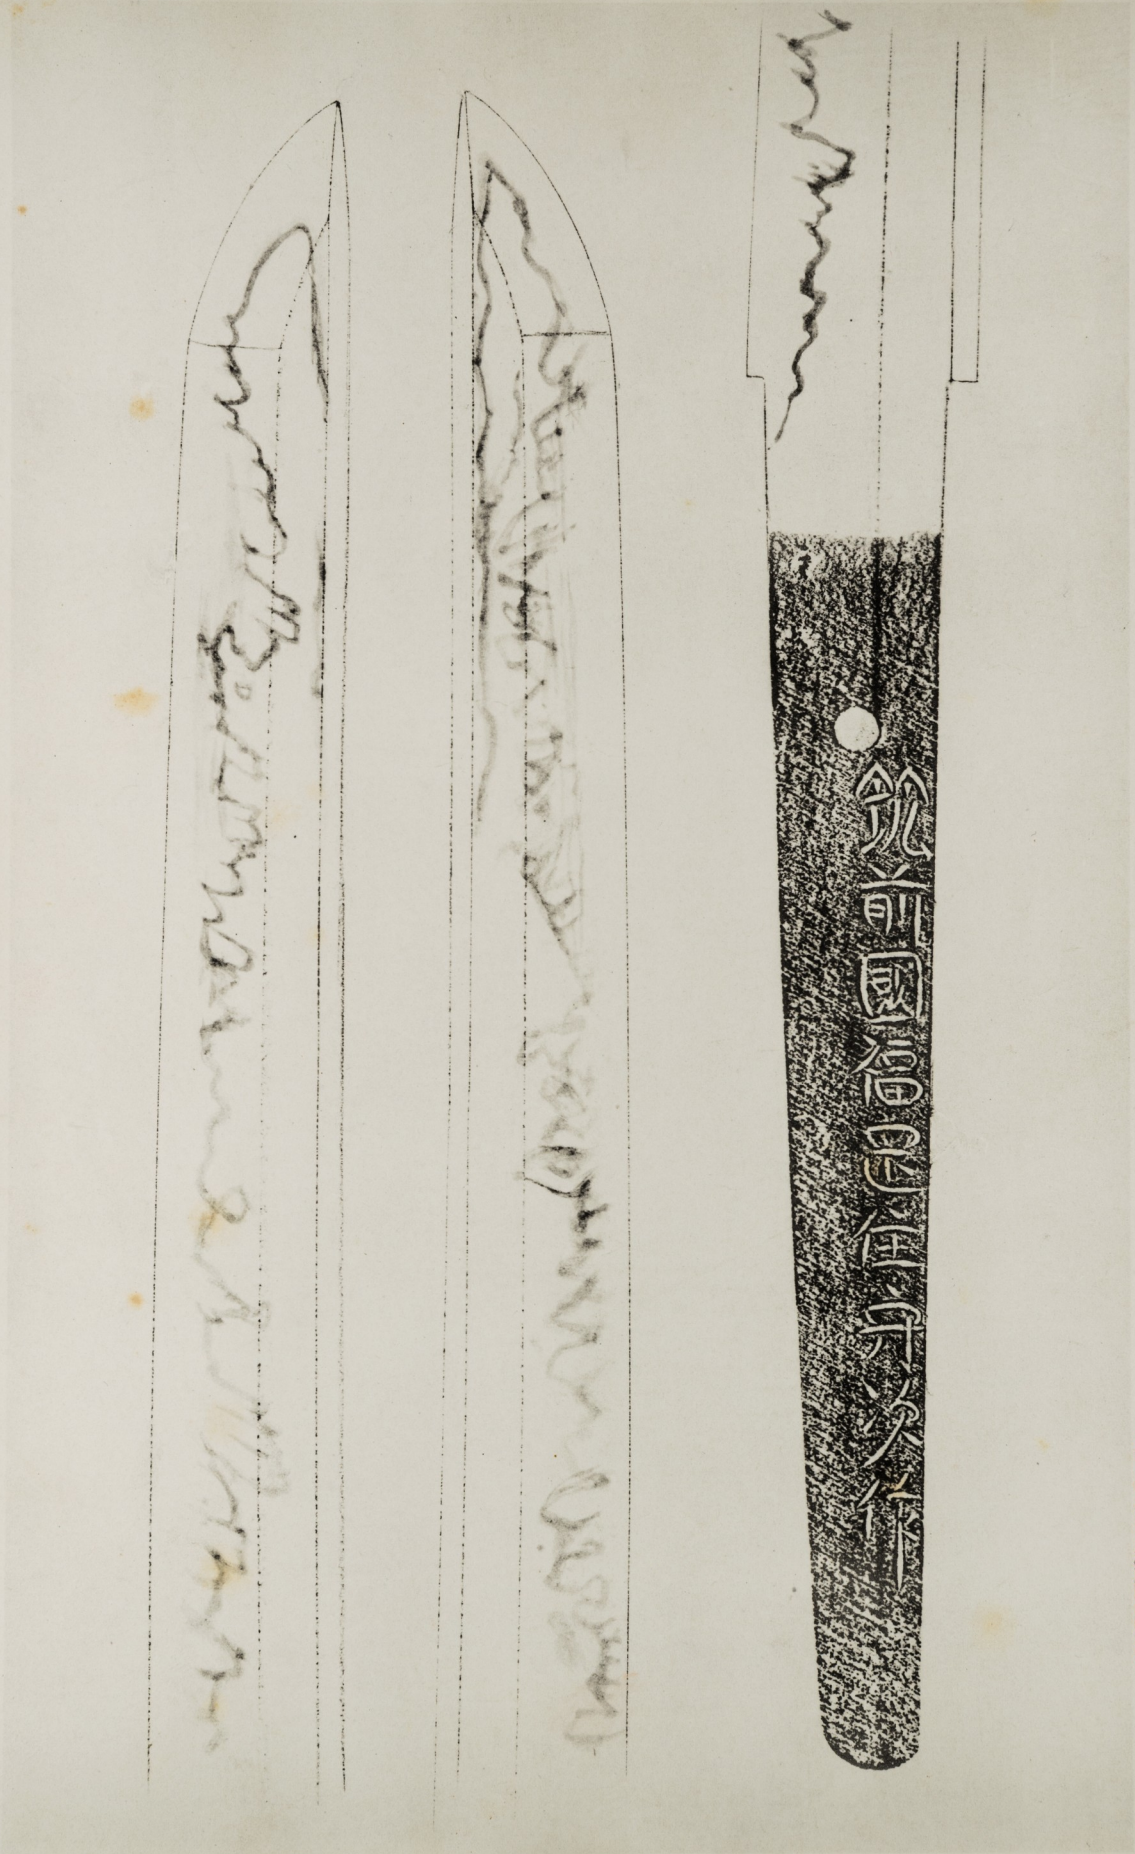 筑前國福岡住守次作